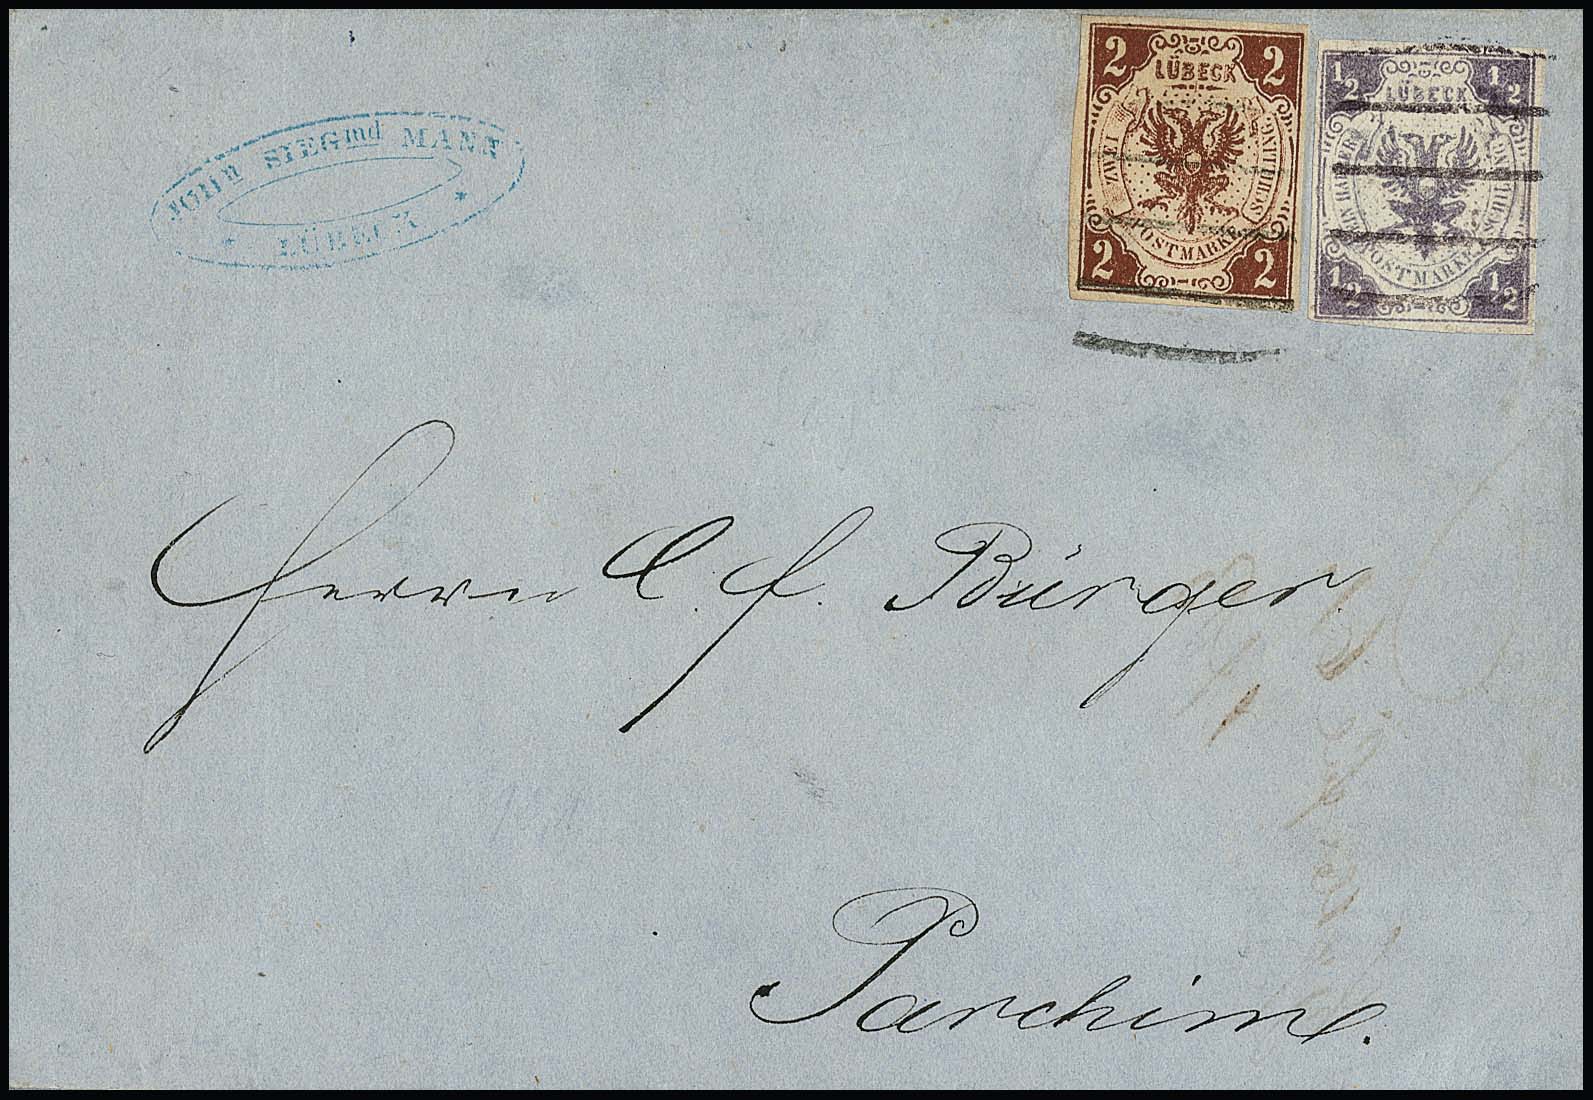 JOHN SIEGmd MANN
* LÜBECK *
2 2
LÜBECK
ZWEI SCHILLING
POSTMARKE
2 2
1/2 1/2
LÜBECK
EIN HALBER SCHILLING
POSTMARKE
1/2 1/2
Herrn C. f. Bürger.
Parchim.